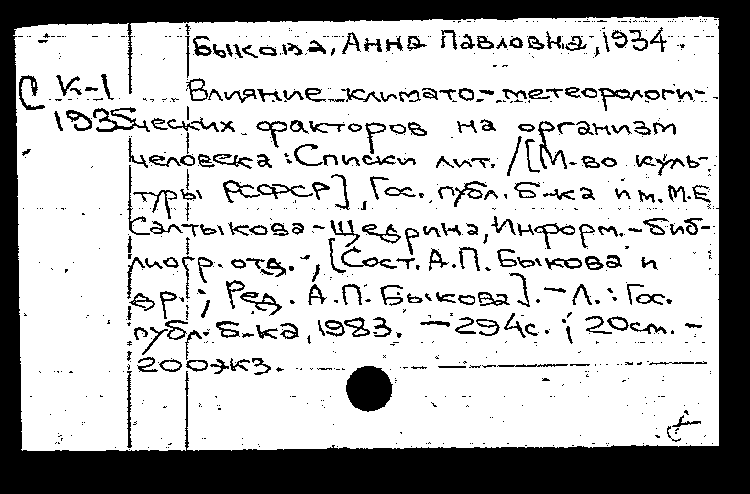 Быкова, Анна Павловна, 1934.
С К-1 Влияние климато-метеорологи-
1935 ческих факторов на организм
человека : Списки лит. / [М-во куль-
туры РСФСР], Гос. публ. б-ка им. М.Е
Салтыкова-Щедрина, Информ.-биб-
лиогр. отд. ; [Сост. А.П. Быкова и
др. ; Ред. А.П. Быкова]. - Л. : Гос.
публ. б-ка, 1983. - 294с. ; 20см. -
200экз.